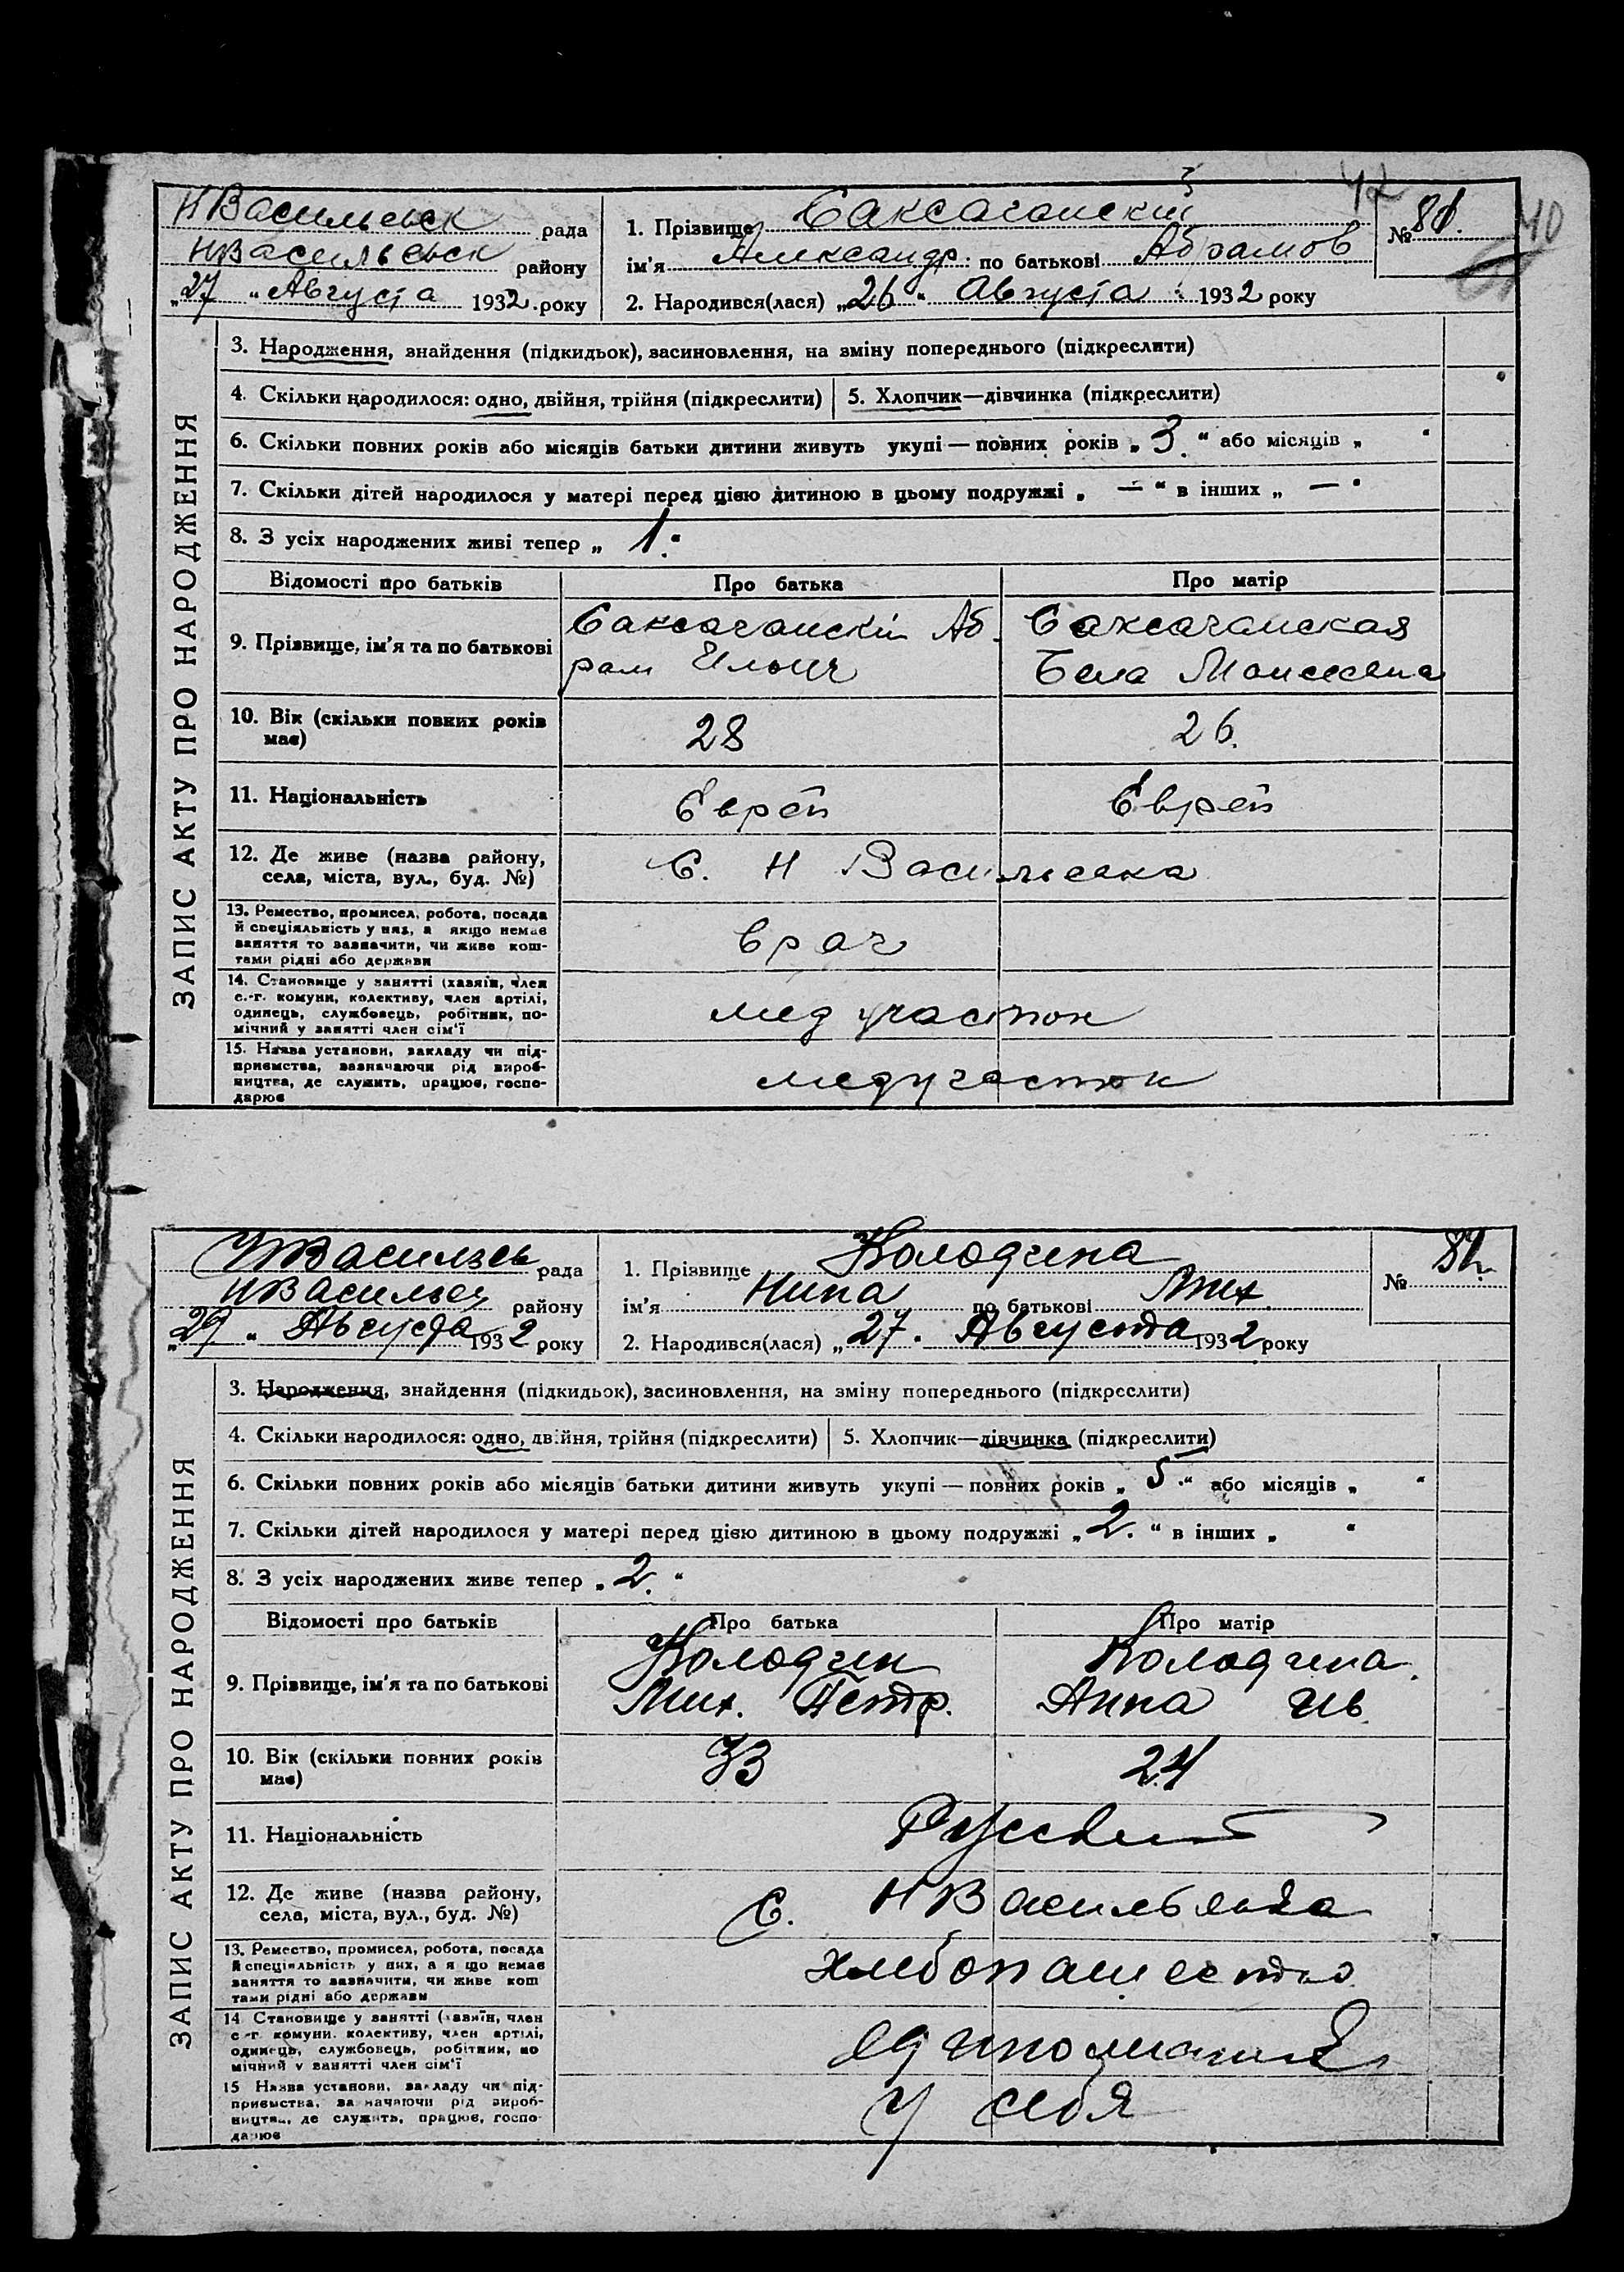 42
40
НВасильевск рада
НВасильевск району
„27“ Августа 1932 року
1. Прізвище Саксаганский
ім'я Александр по батькові Абрамов
2. Народився(лася) „26“ Августа 1932 року
№ 81.
ЗАПИС АКТУ ПРО НАРОДЖЕННЯ
3. Народження, знайдення (підкидьок), засиновлення, на зміну попереднього (підкреслити)
4. Скільки народилося: одно, двійня, трійня (підкреслити) 5. Хлопчик—дівчинка (підкреслити)
6. Скільки повних років або місяців батьки дитини живуть укупі — повних років „3.“ або місяців „ “
7. Скільки дітей народилося у матері перед цією дитиною в цьому подружжі „ — “ в інших „ — “
8. З усіх народжених живі тепер „ 1.“
Відомості про батьків Про батька Про матір
9. Прізвище, ім'я та по батькові
Саксаганский Аб-
рам Ильич
Саксаганская
Бела Моисеевна
10. Вік (скільки повних років
має)
28 26.
11. Національність Еврей Еврей
12. Де живе (назва району,
села, міста, вул., буд. №)
С. Н Васильевка
13. Ремество, промисел, робота, посада
й спеціяльність у них, а якщо немає
заняття то зазначити, чи живе кош-
тами рідні або держави
врач
14. Становище у занятті (хазяїн, член
с.-г. комуни, колективу, член артілі,
одинець, службовець, робітник, по-
мічний у занятті член сім'ї
мед участок
15. Назва установи, закладу чи під-
приємства, зазначаючи рід вироб-
ництва, де служить, працює, госпо-
дарює
медучасток
НВасильев рада
НВасильев району
„29“ Августа 1932 року
1. Прізвище Колодина
ім'я Нина по батькові Мих.
2. Народився(лася) „27. Августа 1932 року
№ 82.
ЗАПИС АКТУ ПРО НАРОДЖЕННЯ
3. Народження, знайдення (підкидьок), засиновлення, на зміну попереднього (підкреслити)
4. Скільки народилося: одно, двійня, трійня (підкреслити) 5. Хлопчик—дівчинка (підкреслити)
6. Скільки повних років або місяців батьки дитини живуть укупі — повних років „5.“ або місяців „ “
7. Скільки дітей народилося у матері перед цією дитиною в цьому подружжі „2.“ в інших „ “
8. З усіх народжених живе тепер „2.“
Відомості про батьків Про батька Про матір
9. Прізвище, ім'я та по батькові
Колодин
Мих. Петр.
Колодина
Анна Ив
10. Вік (скільки повних років
має)
33 24
11. Національність Русские
12. Де живе (назва району,
села, міста, вул., буд. №)
С. НВасильевка
13. Ремество, промисел, робота, посада
й спеціяльність у них, а якщо немає
заняття то зазначити, чи живе кош
тами рідні або держави
хлебопашество
14 Становище у занятті (хазяїн, член
с-г. комуни. колективу, член артілі,
одинець, службовець, робітник, по
мічний у занятті член сім'ї
единоличник
15 Назва установи, закладу чи під-
приємства, зазначаючи рід вироб-
ництва, де служить, працює, госпо-
дарює
У себя